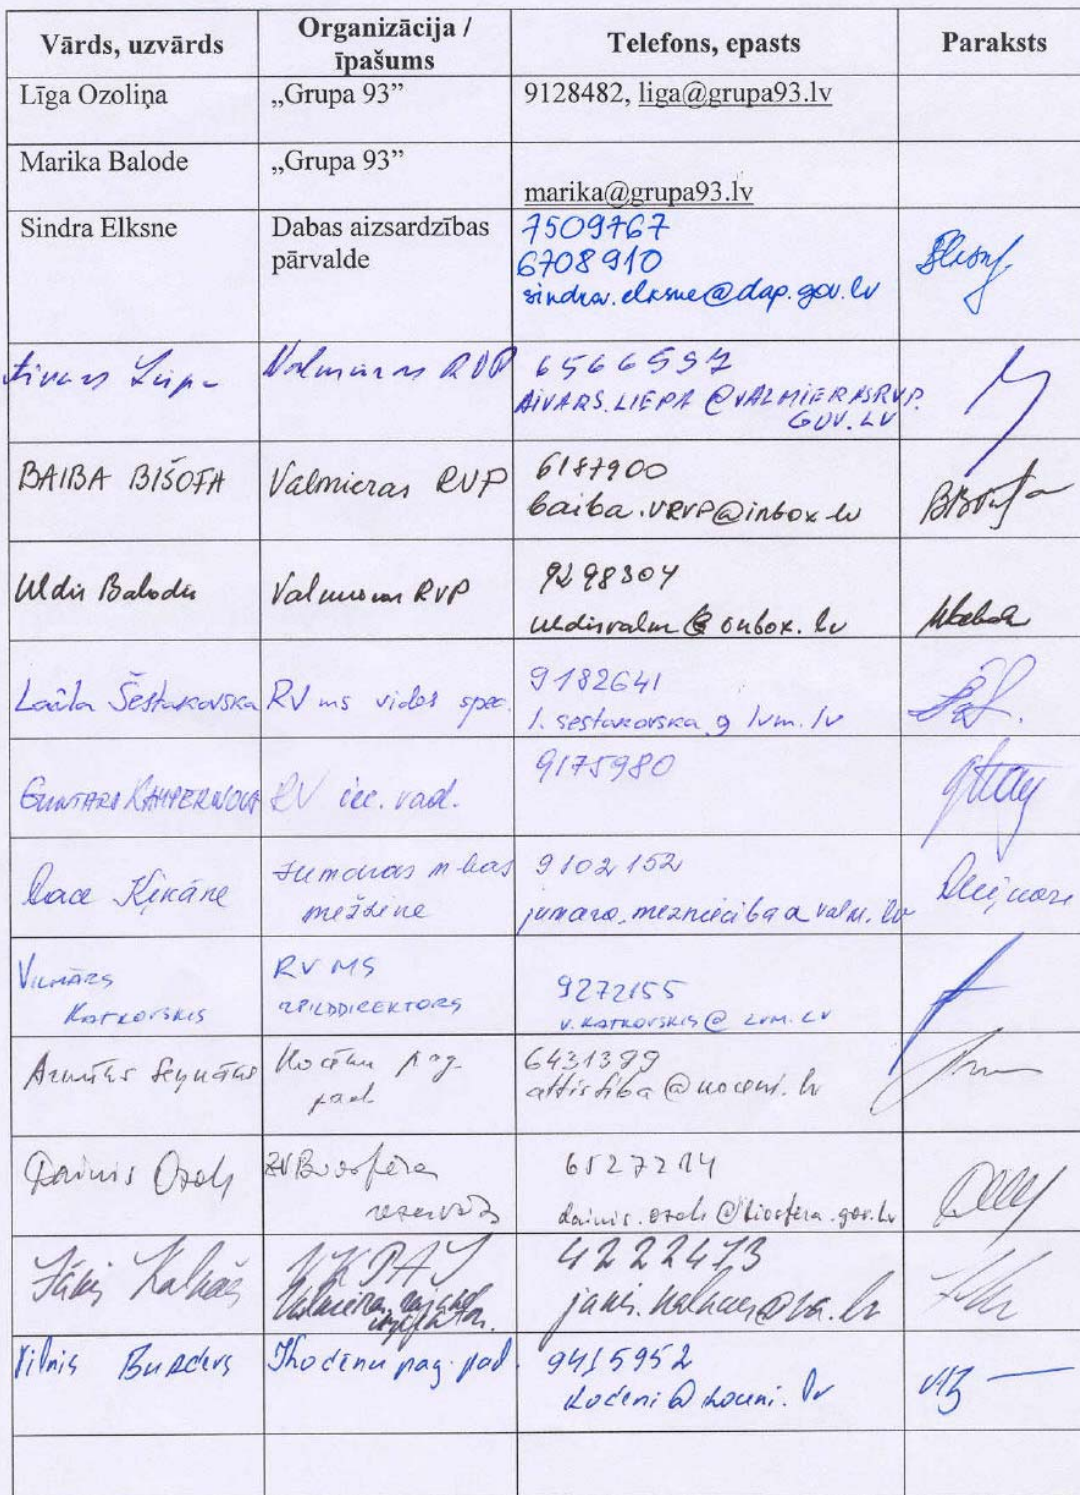 Vārds, uzvārds
Organizācija /
īpašums
Telefons, epasts
Paraksts
Līga Ozoliņa
„Grupa 93”
9128482, liga@grupa93.lv
Marika Balode
„Grupa 93”
marika@grupa93.lv
Sindra Elksne
Dabas aizsardzības
pārvalde
7509767
6708910
sindra.elksne@dap.gov.lv
Aivars Liepa
Valmieras RVP
6566597
AIVARS.LIEPA@VALMIERASRVP.
GOV.LV
BAIBA BIŠOFA
Valmieras RVP
6187900
baiba.VRVP@inbox.lv
Uldis Balodis
Valmieras RVP
9298304
uldisvalm@inbox.lv
Laila Šestakovska
RV ms vides spec.
9182641
l.sestakovska@lvm.lv
GUNTARS
RV iec. vad.
9175980
Dace Ķikāne
Jumaras m-bas
mežzine
9102152
VILMĀRS
KATKOVSKIS
RV MS
IZPILDDIREKTORS
9272155
V.KATKOVSKIS@LVM.LV
Kocēnu pag.
pad.
6431399
attistiba@koceni.lv
Dainis Ozols
ZV Biosfēras
rezervāts
6527214
dainis.ozols@biosfera.gov.lv
Jānis Kalnačs
VKPAI
Valmieras rajona
inspektors.
4222473
janis.kalnacs@va.lv
Vilnis
Kocēnu pag. pad.
9415952
koceni@koceni.lv